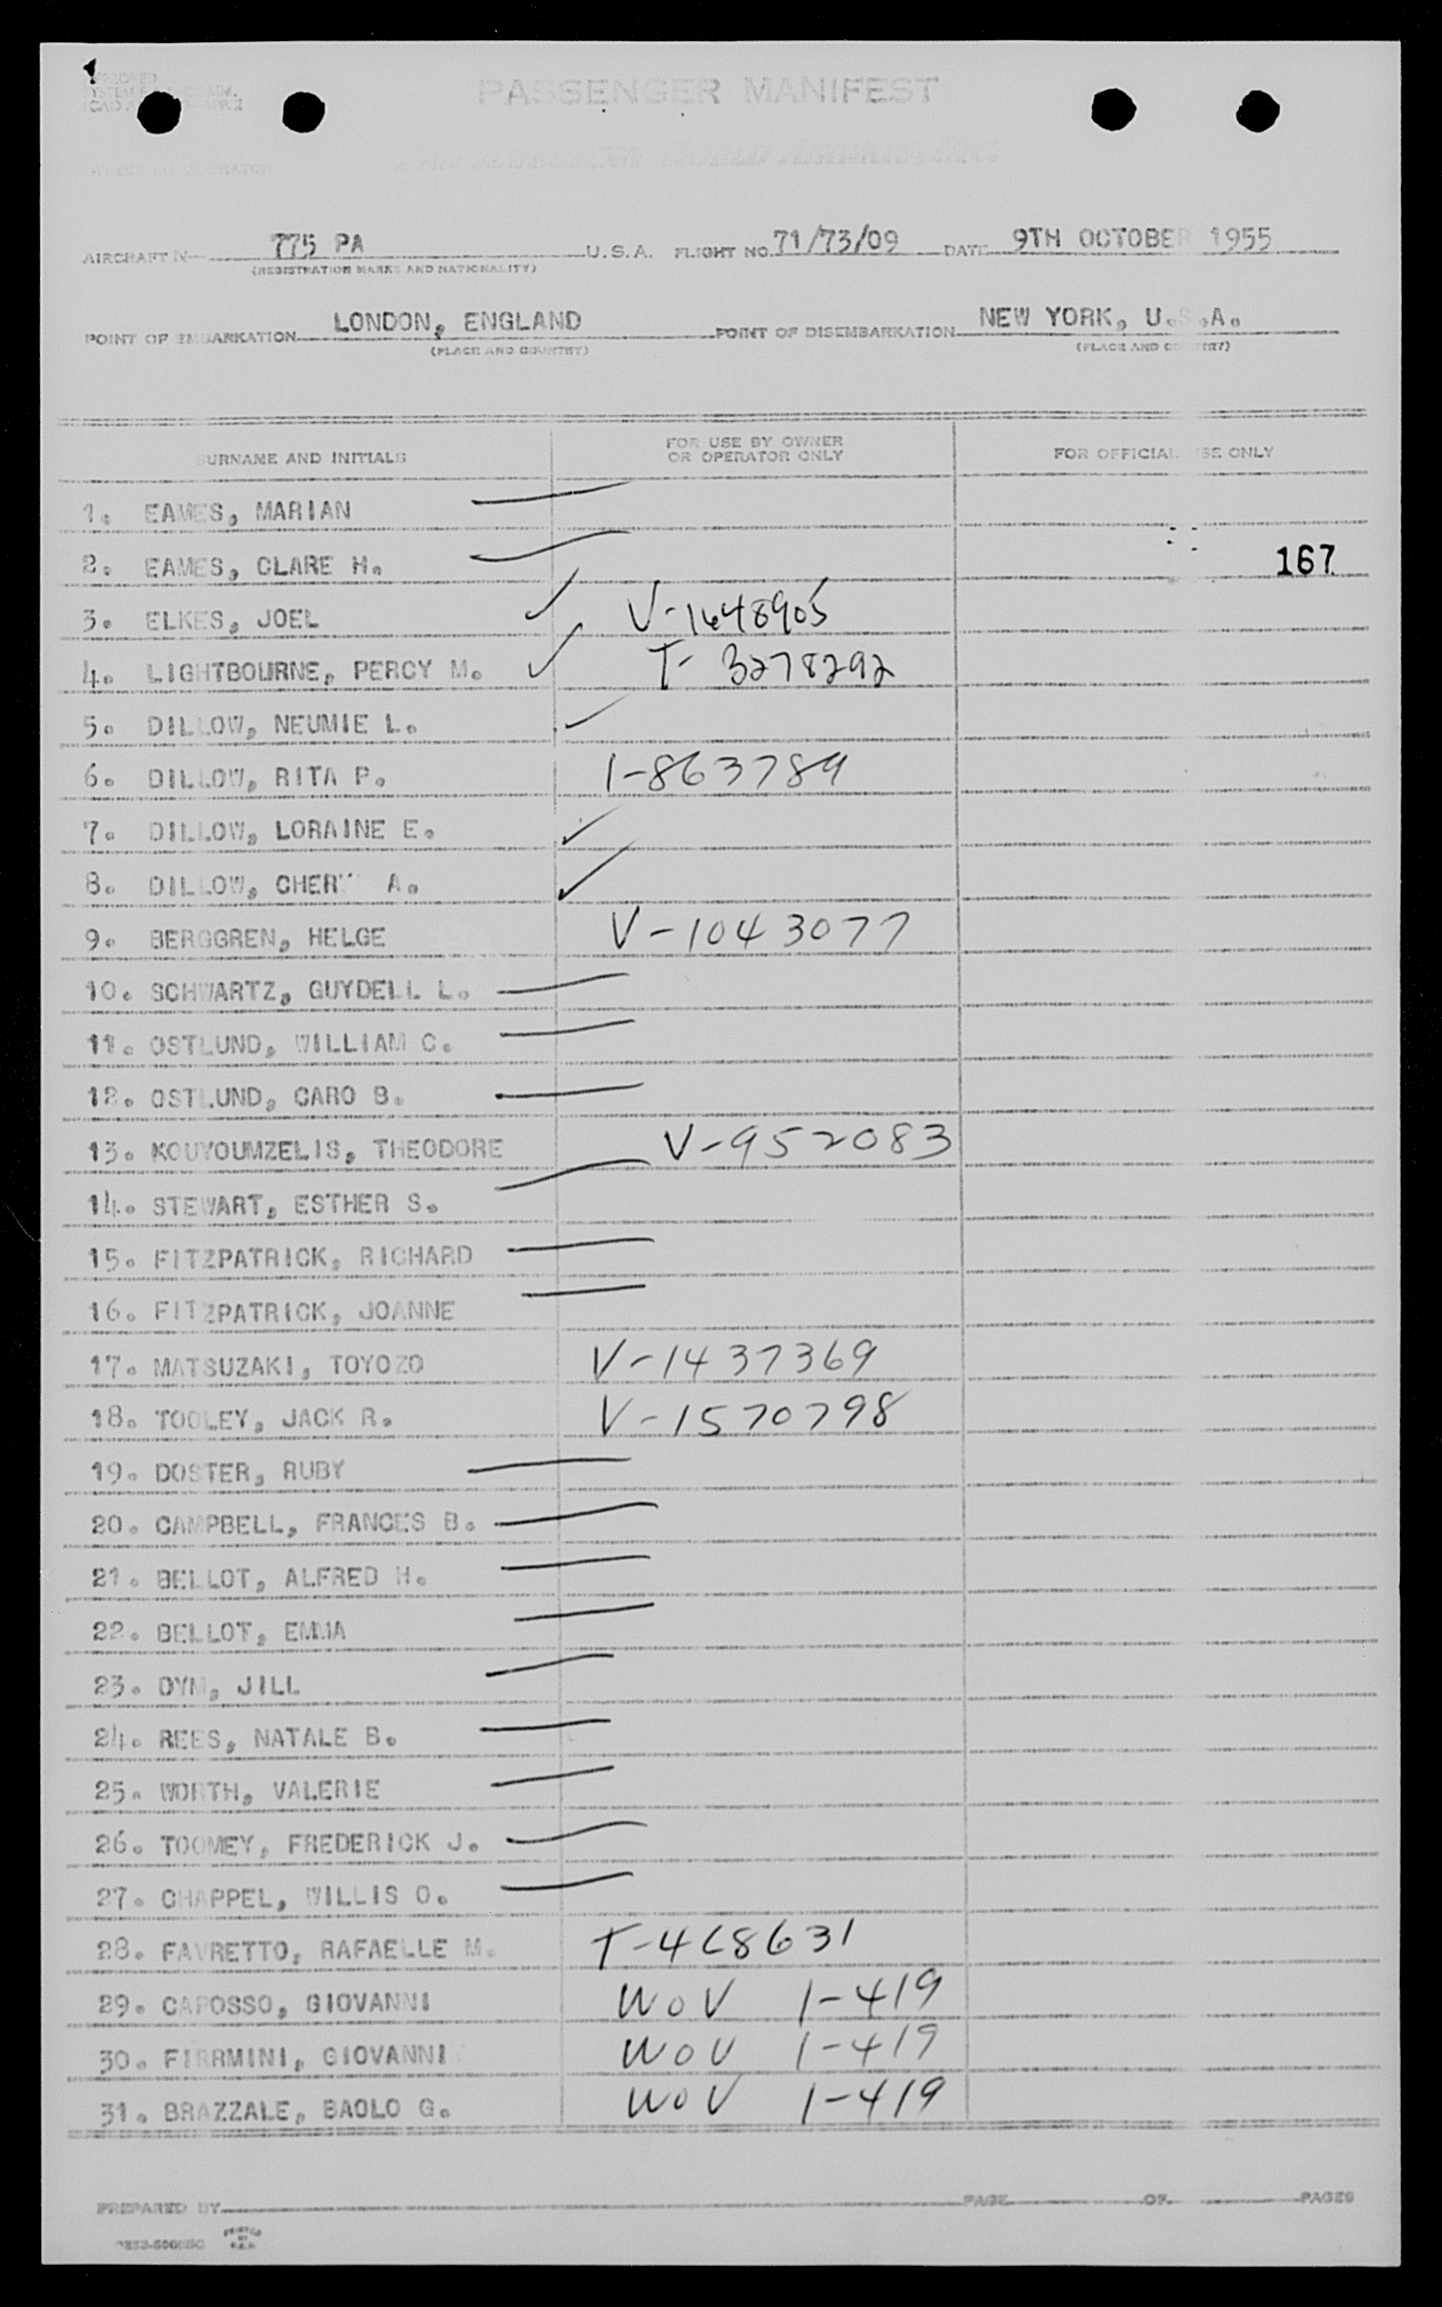 PASSENGER MANIFEST
AIRCRAFT N 775 PA U.S.A. FLIGHT NO. 71/73/09 DATE 9TH OCTOBER 1955
(REGISTRATION MARKS AND NATIONALITY)
POINT OF EMBARKATION LONDON, ENGLAND POINT OF DISEMBARKATION NEW YORK, U.S.A.
(PLACE AND COUNTRY) (PLACE AND COUNTRY)
SURNAME AND INITIALS FOR USE BY OWNER OR OPERATOR ONLY FOR OFFICIAL USE ONLY
1. EAMES, MARIAN
2. EAMES, CLARE H. 167
3. ELKES, JOEL V-1648905
4. LIGHTBOURNE, PERCY M. T-3278292
5. DILLOW, NEUMIE L.
6. DILLOW, RITA P. 1-863789
7. DILLOW, LORAINE E.
8. DILLOW, CHER A.
9. BERGGREN, HELGE V-1043077
10. SCHWARTZ, GUYDELL L.
11. OSTLUND, WILLIAM C.
12. OSTLUND, CARO B.
13. KOUYOUMZELIS, THEODORE V-952083
14. STEWART, ESTHER S.
15. FITZPATRICK, RICHARD
16. FITZPATRICK, JOANNE
17. MATSUZAKI, TOYOZO V-1437369
18. TOOLEY, JACK R. V-1570798
19. DOSTER, RUBY
20. CAMPBELL, FRANCES B.
21. BELLOT, ALFRED H.
22. BELLOT, EMMA
23. DYM, JILL
24. REES, NATALE B.
25. WORTH, VALERIE
26. TOOMEY, FREDERICK J.
27. CHAPPEL, WILLIS O.
28. FAVRETTO, RAFAELLE M. T-468631
29. CAPOSSO, GIOVANNI WOV 1-419
30. FIRRMINI, GIOVANNI WOV 1-419
31. BRAZZALE, BAOLO G. WOV 1-419
PREPARED BY PAGE OF PAGES